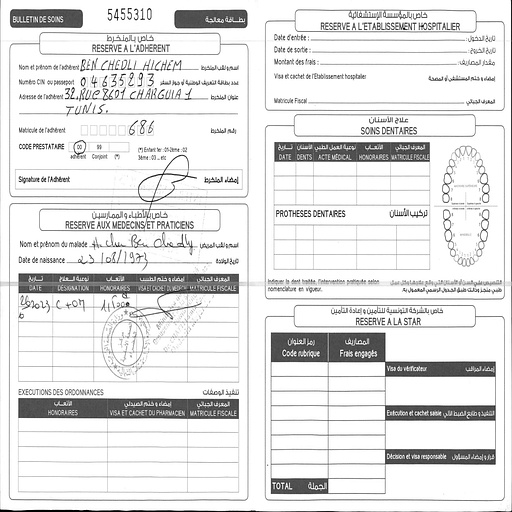 BULLETIN DE SOINS 5455310 بطاقة معالجة
خاص بالمنخرط
RESERVE A L'ADHERENT
Nom et prénom de l'adhérent BEN CHEDLI HICHEM اسم و لقب المنخرط
Numéro CIN ou passeport 04635293 عدد بطاقة التعريف الوطنية أو جواز السفر
Adresse de l'adhérent 32, RUE 8601 CHARGUIA 1 عنوان المنخرط
TUNIS.
Matricule de l'adhérent 686 رقم المنخرط
CODE PRESTATAIRE 00 99 (*) Enfant 1er : 01-2ème : 02
adhérent Conjoint (*) 3ème : 03 ... etc
Signature de l'Adhérent إمضاء المنخرط
خاص بالأطباء و الممارسين
RESERVE AUX MEDECINS ET PRATICIENS
Nom et prénom du malade Ben Chedly اسم و لقب المريض
Date de naissance 23/08/1973 تاريخ الولادة
تاريخ نوعية العلاج الأتعاب إمضاء و ختم الطبيب المعرف الجبائي
DATE DESIGNATION HONORAIRES VISA ET CACHET DU MEDECIN MATRICULE FISCALE
EXECUTIONS DES ORDONNANCES تنفيذ الوصفات
الأتعاب إمضاء و ختم الصيدلي المعرف الجبائي
HONORAIRES VISA ET CACHET DU PHARMACIEN MATRICULE FISCALE
خاص بالمؤسسة الإستشفائية
RESERVE A L'ETABLISSEMENT HOSPITALIER
Date d'entrée : تاريخ الدخول :
Date de sortie : تاريخ الخروج :
Montant des frais : مقدار المصاريف :
Visa et cachet de l'Etablissement hospitalier إمضاء و ختم المستشفى أو المصحة
Matricule Fiscal المعرف الجبائي
علاج الأسنان
SOINS DENTAIRES
تاريخ الأسنان نوعية العمل الطبي الأتعاب المعرف الجبائي
DATE DENTS ACTE MÉDICAL HONORAIRES MATRICULE FISCALE
PROTHESES DENTAIRES تركيب الأسنان
Indiquer la dent traitée, l'intervention pratiquée selon
nomenclature en vigueur.
خاص بالشركة التونسية للتأمين و إعادة التأمين
RESERVE A LA STAR
رمز العنوان المصاريف
Code rubrique Frais engagés
Visa du vérificateur إمضاء المراقب
Exécution et cachet saisie التنفيذ و طابع الضبط الآلي
Décision et visa responsable قرار و إمضاء المسؤول
TOTAL الجملة